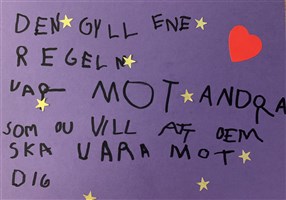 DEN GYLLENE
REGELN
VAR MOT ANDRA
SOM DU VILL ATT DEM
SKA VARA MOT
DIG